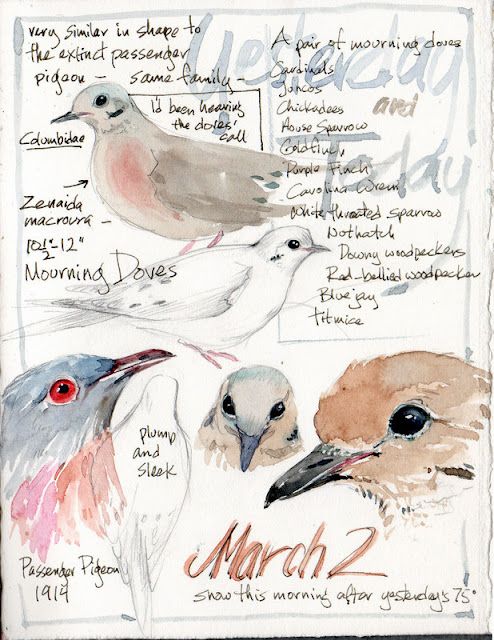 very similar in shape to
the extinct passenger
pigeon - same family -
I'd been hearing
the doves'
call
Columbidae
Zenaida
macroura -
10 1/2" - 12"
Mourning Doves
Yesterday
and
Today
A pair of mourning doves
Cardinals
Juncos
Chickadees
House Sparrow
Goldfinch
Purple Finch
Carolina Wren
White throated sparrow
Nothatch
Downy woodpeckers
Red-bellied woodpecker
Bluejay
titmice
plump
and
sleek
Passenger Pigeon
1914
March 2
snow this morning after yesterday's 75°